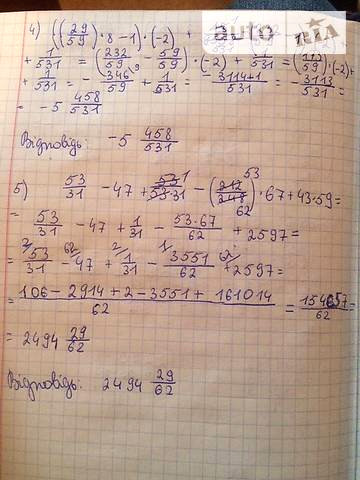 4) ((29/59) · 8 − 1) · (−2) +
+ 1/531 = (232/59 − 59/59) · (−2) + 1/531 = (173/59) · (−2) +
+ 1/531 = − 346/59 \9 + 1/531 = − 3114+1/531 = − 3113/531 =
= −5 458/531
Відповідь: −5 458/531
5) 53/31 − 47 + 53 1/53·31 − (212/248) 53/62 · 67 + 43·59 =
= 53/31 − 47 + 1/31 − 53·67/62 + 2597 =
= 2/ 53/31 − 62/ 47 + 2/ 1/31 − 1/ 3551/62 + 62/ 2597 =
= 106 − 2914 + 2 − 3551 + 161014/62 = 154657/62 =
= 2494 29/62
Відповідь: 2494 29/62
auto RIA